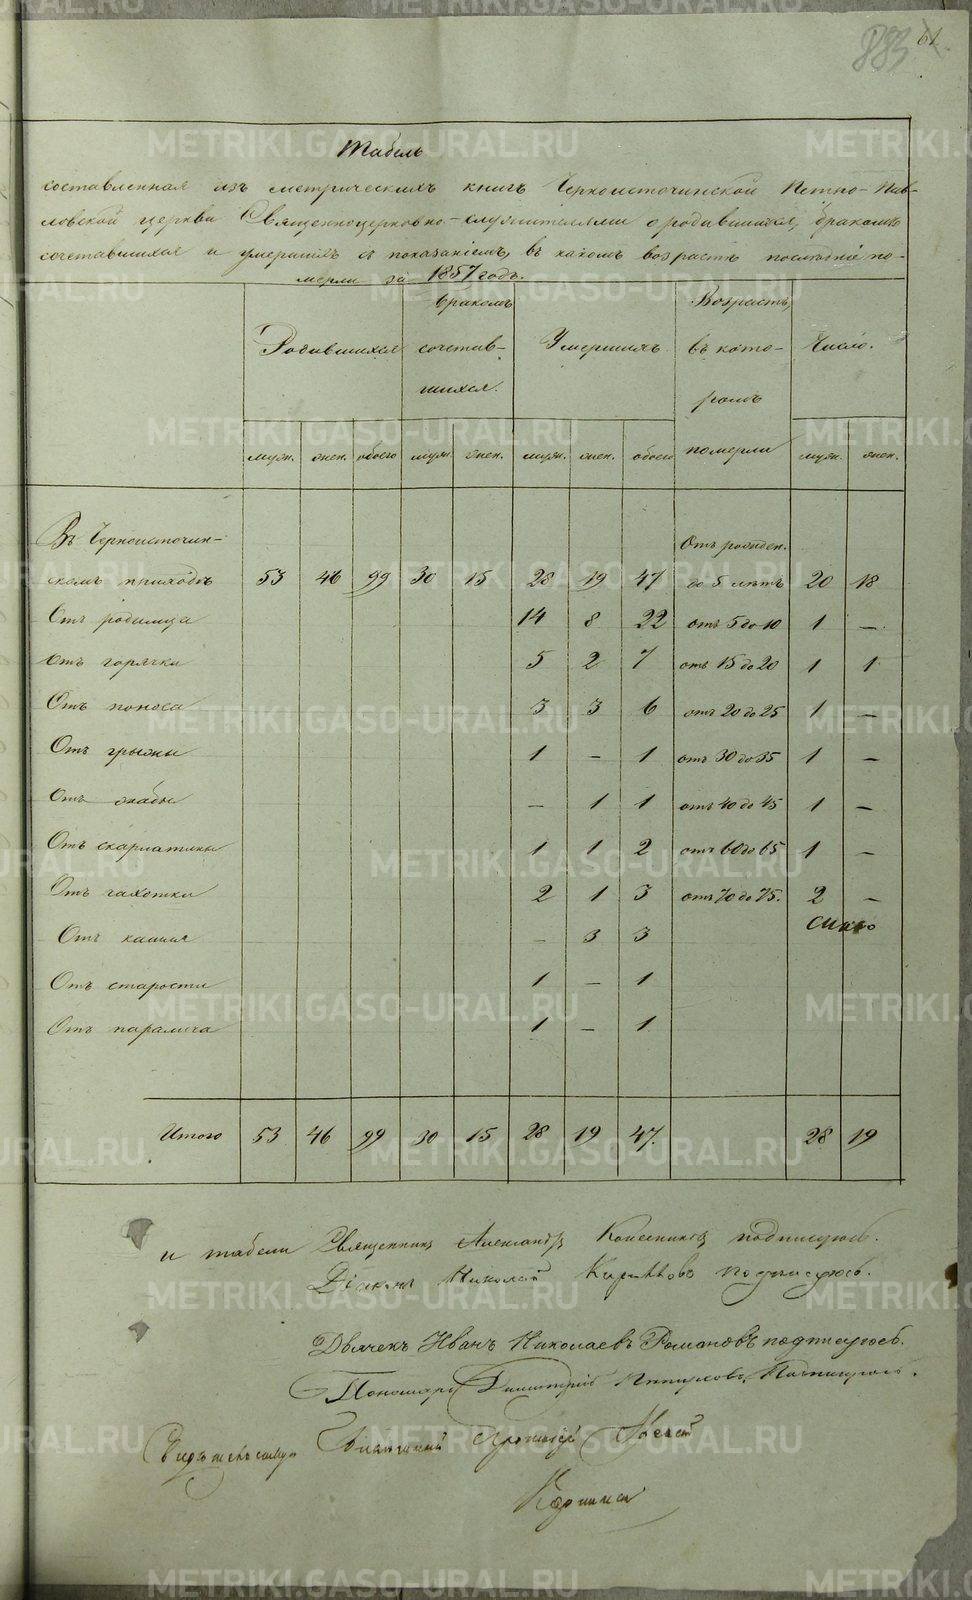 61
883
Табель
составленная изъ метрическихъ книгъ Черноисточинской Петро-Пав-
ловской церкви Священноцерковно-служителями о родившихся, бракомъ
сочетавшихся и умершихъ съ показаніемъ, въ какомъ возрастѣ послѣдніе по-
мерли за 1857 годъ.
Родившихся бракомъ сочетав- шихся. Умершихъ Возрастъ, въ кото- ромъ померли Число.
муж. жен. обоего муж. жен. муж. жен. обоего муж. жен.
Въ Черноисточин- Отъ рожден.
скомъ приходѣ 53 46 99 30 15 28 19 47 до 5 лѣтъ 20 18
Отъ родимца 14 8 22 отъ 5 до 10 1 —
Отъ горячки 5 2 7 отъ 15 до 20 1 1
Отъ поноса 3 3 6 отъ 20 до 25 1 —
Отъ грыжи 1 — 1 отъ 30 до 35 1 —
Отъ жабы — 1 1 отъ 40 до 45 1 —
Отъ скарлатины 1 1 2 отъ 60 до 65 1 —
Отъ чахотки 2 1 3 отъ 70 до 75. 2 —
Отъ кашля — 3 3
Отъ старости 1 — 1
Отъ паралича 1 — 1
Итого 53 46 99 30 15 28 19 47. 28 19
и табели Священникъ Александръ подписуюсь.
Діаконъ Николай подписуюсь.
Дьячекъ Иванъ Николаевъ Романовъ подписуюсь.
Пономарь Димитрій
METRIKI.GASO-URAL.RU